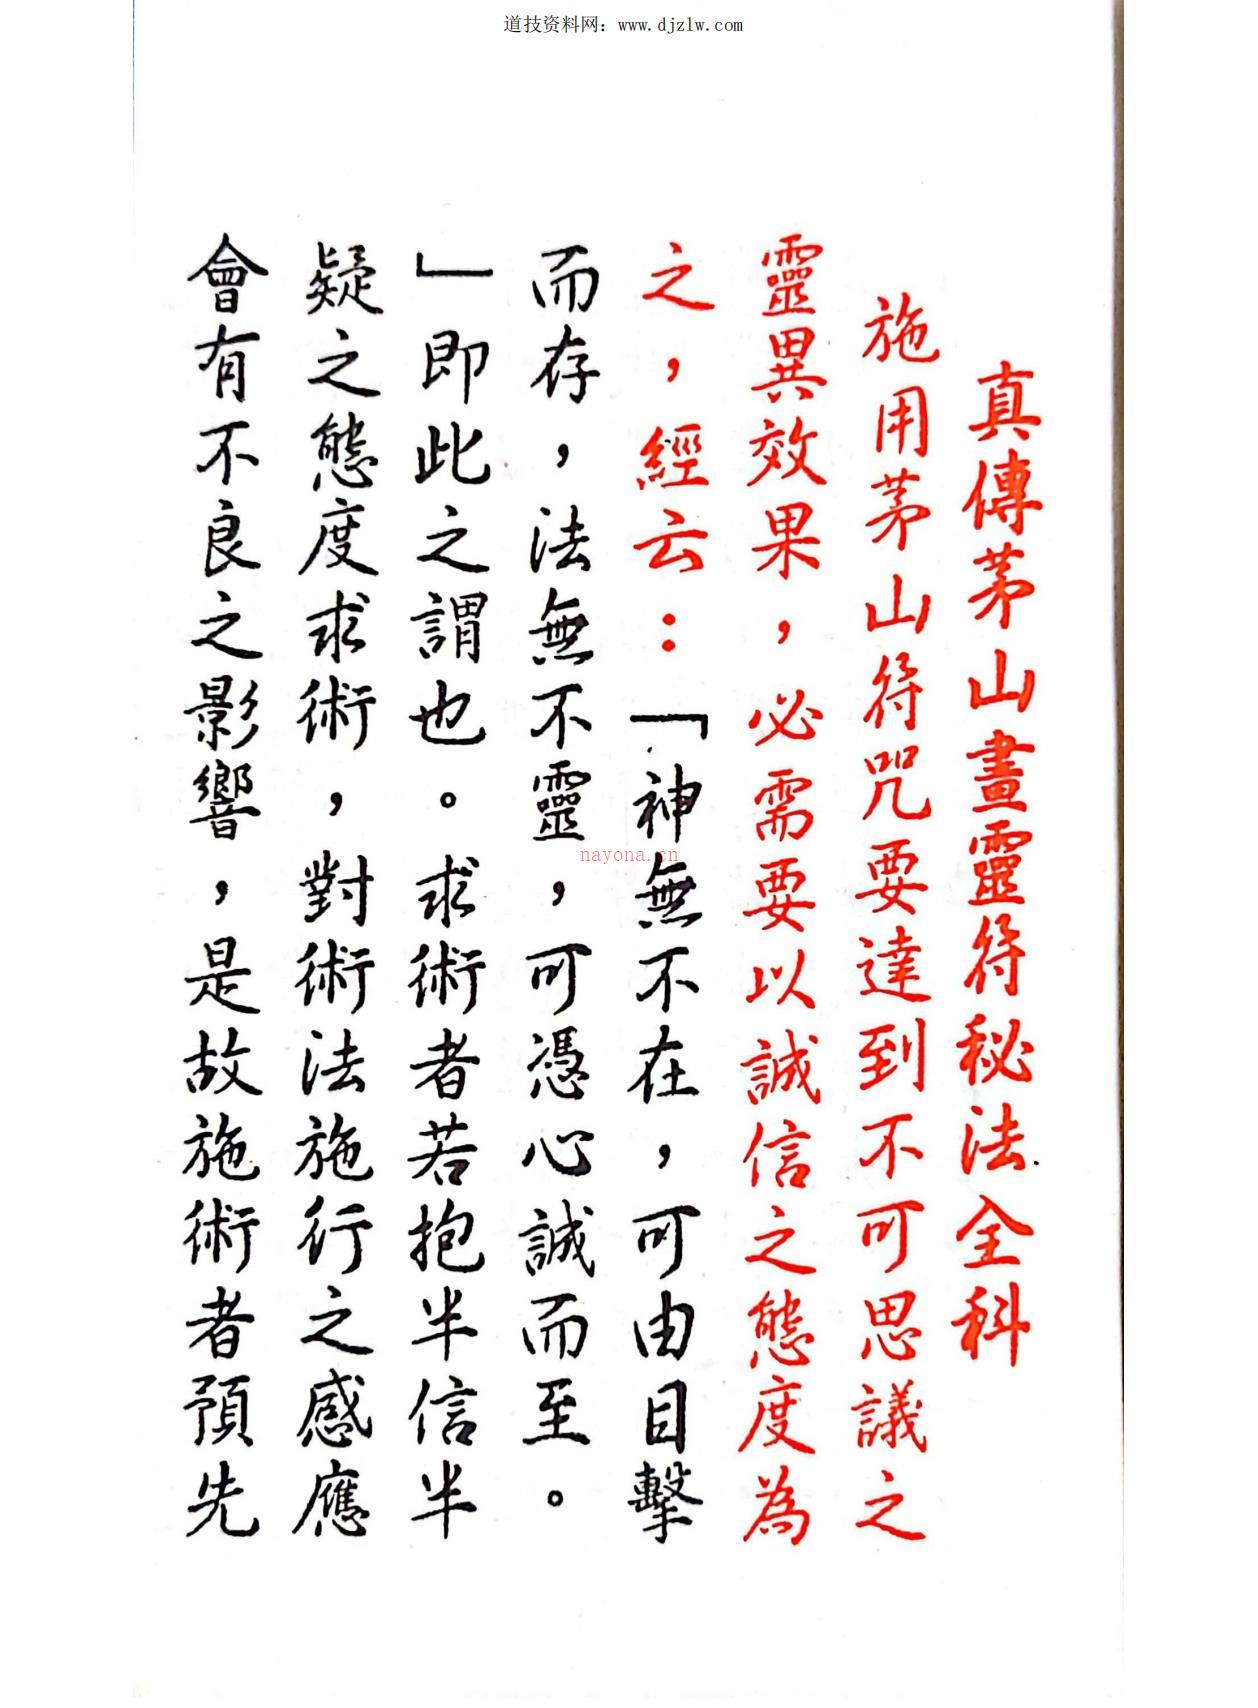 道技资料网：www.djzlw.com
真傳茅山畫靈符秘法全科
施用茅山符咒要達到不可思議之
靈異效果，必需要以誠信之態度為
之，經云：「神無不在，可由目擊
而存，法無不靈，可憑心誠而至。
」即此之謂也。求術者若抱半信半
疑之態度求術，對術法施行之感應
會有不良之影響，是故施術者預先
nayona.cn